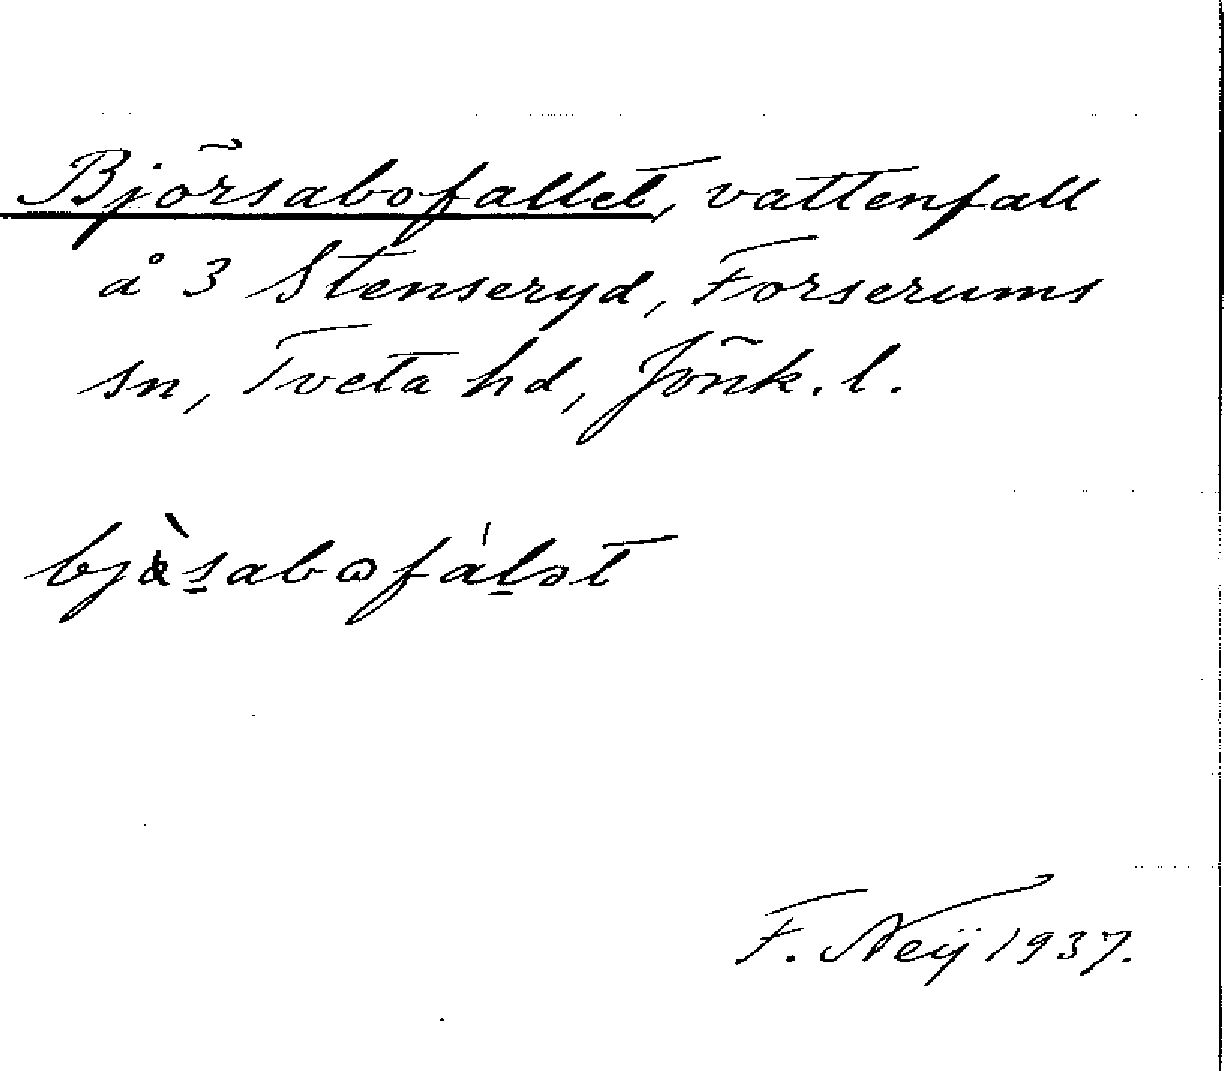 Björsabofallet, vattenfall
å 3 Stenseryd, Forserums
sn, Tveta hd, Jönk. l.
F. Neij 1937.